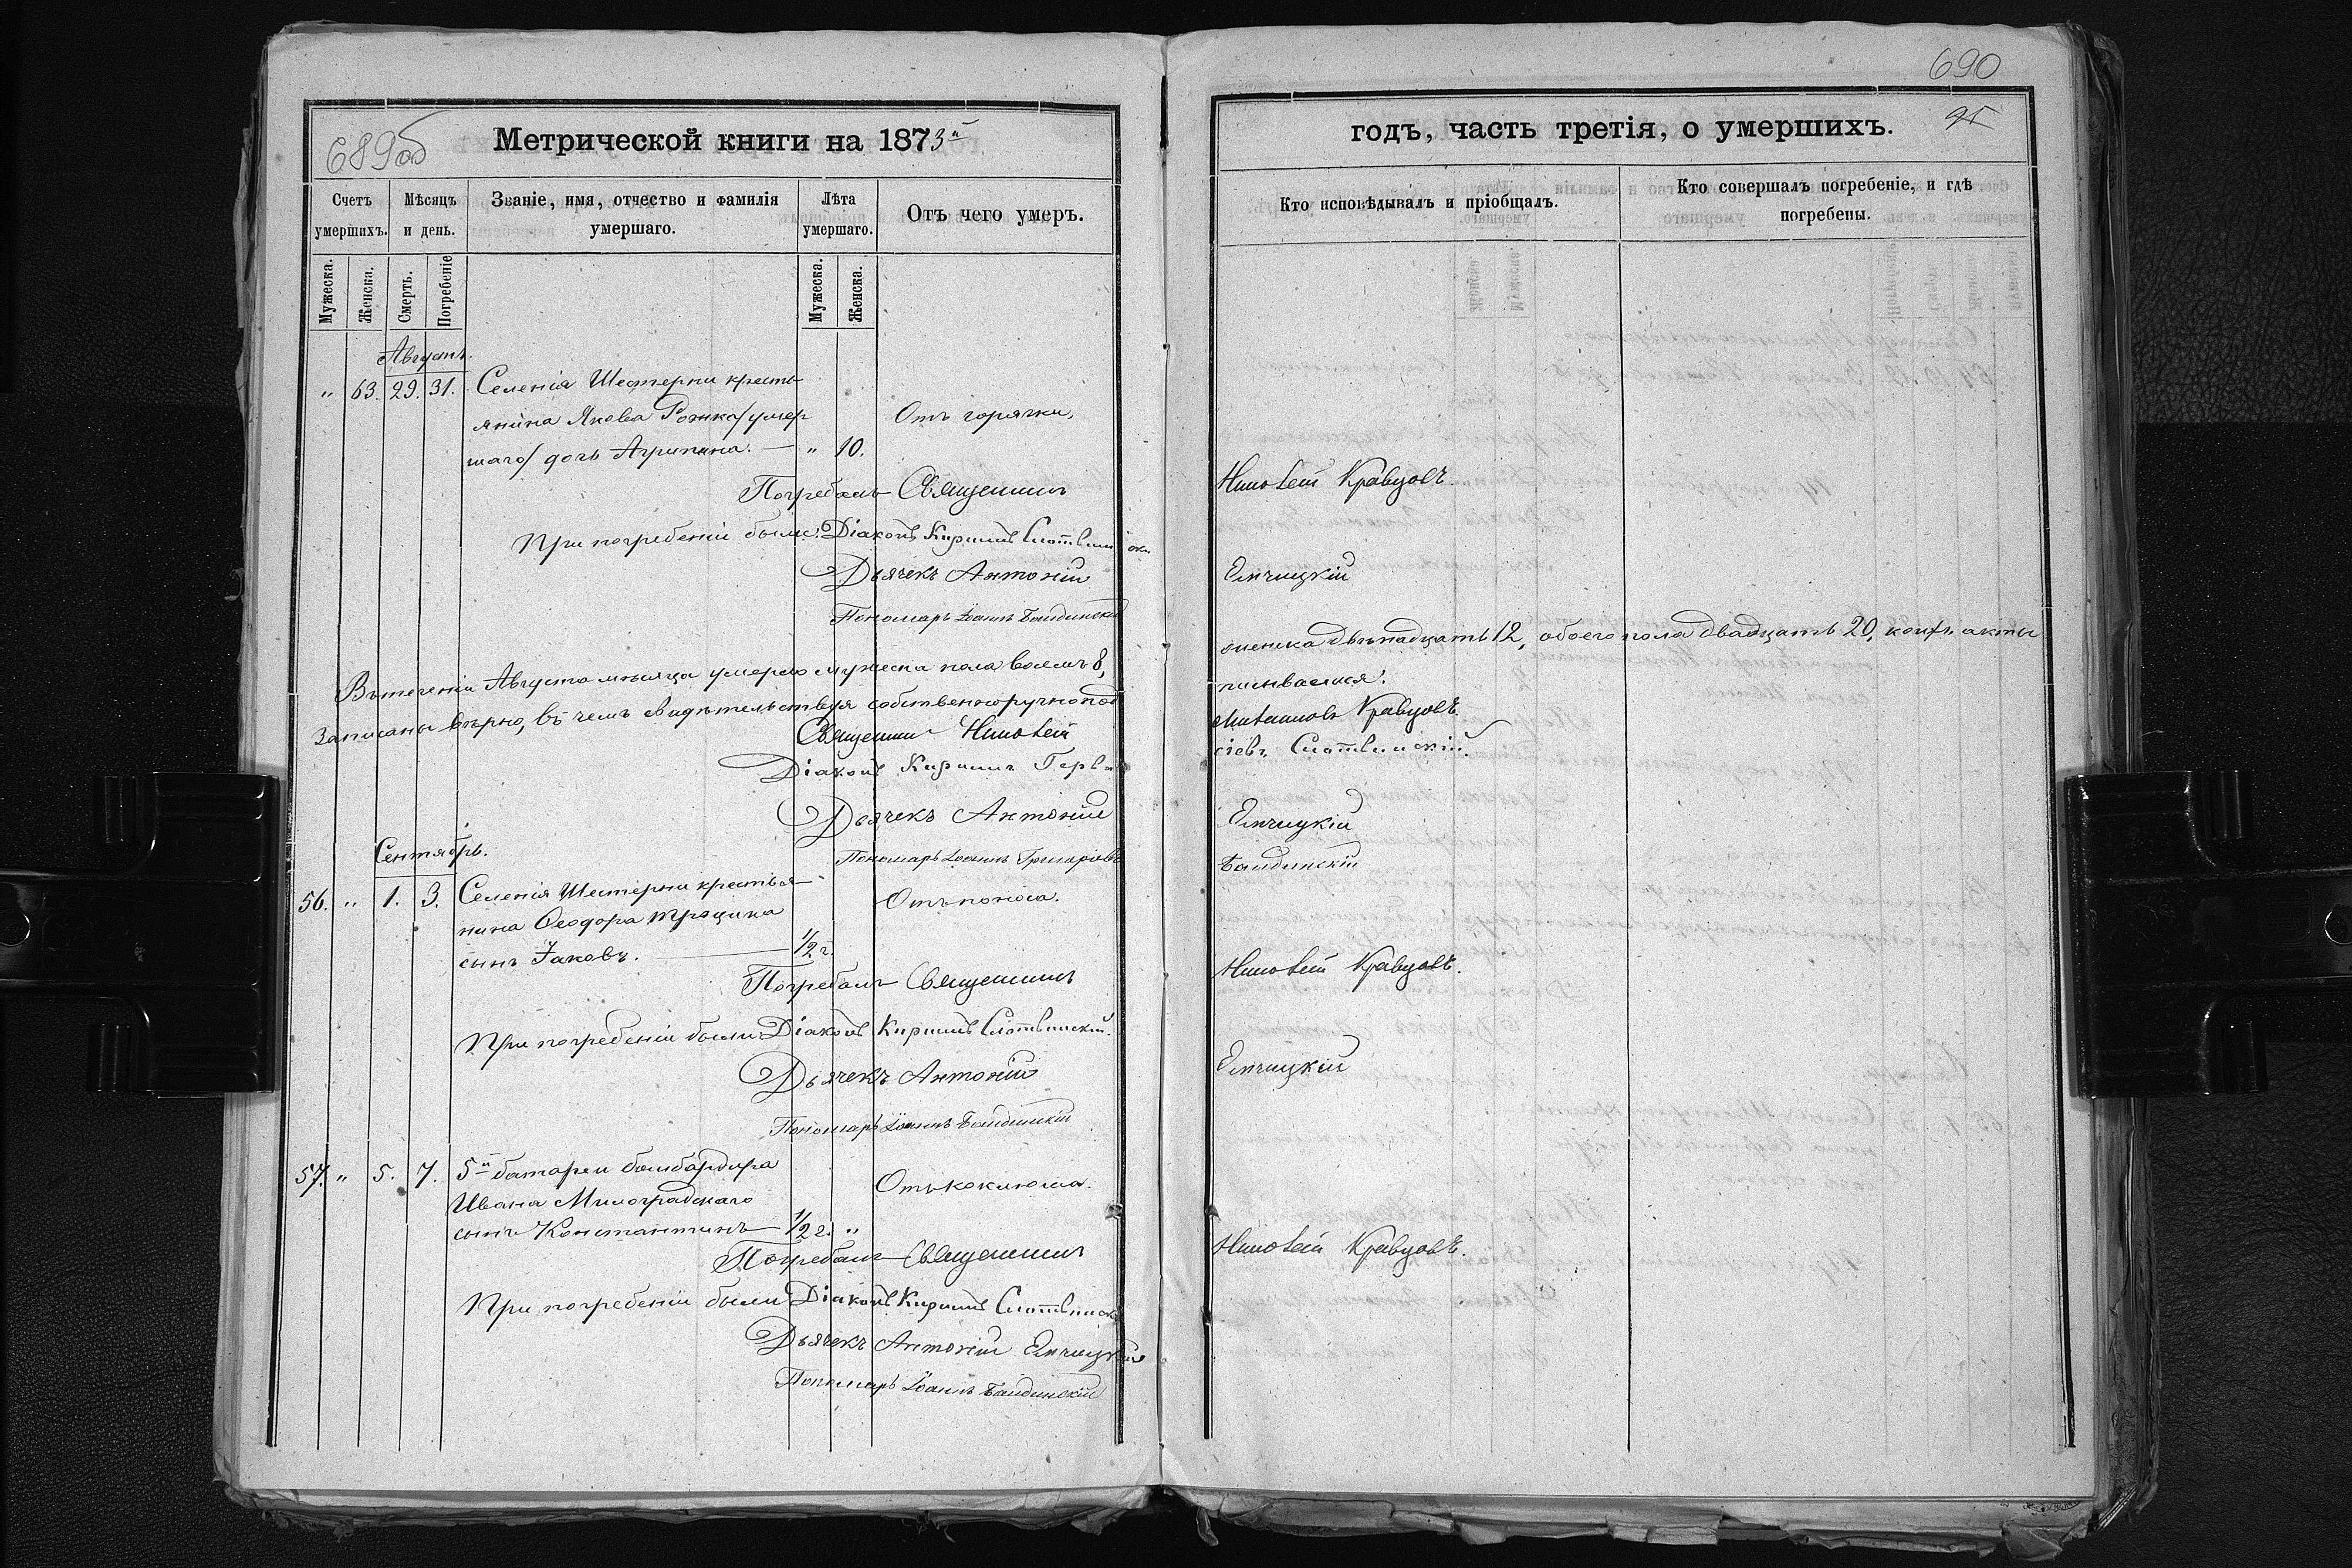 689об
Метрической книги на 1873й
Счетъ умершихъ.
Мѣсяцъ и день.
Званіе, имя, отчество и фамилія умершаго.
Лѣта умершаго.
Отъ чего умеръ.
Мужеска.
Женска.
Смерть.
Погребеніе
Мужеска.
Женска.
Августъ.
" 63. 29. 31. Селенія Шестерни кресть-
янина Якова Рожка /умер Отъ горячки,
шаго/ дочь Агрипина. — " 10.
Погребалъ Священникъ
При погребеніи были: Діаконъ Кириллъ Слотвински
Дьячекъ Антоній
Пономарь Іоаннъ Бандинскій
Въ теченіи Августа мѣсяца умерло мужеска пола восемь 8,
Записаны вѣрно, въ чемъ свидѣтельствуя собственноручно под
Священникъ Тимоѳей
Діаконъ Кириллъ Герва
Дьячекъ Антоній
Пономарь Іоаннъ Григоріевъ
Сентябрь.
56. " 1. 3. Селенія Шестерни крестья- Отъ поноса.
нина Ѳеодора Троцика
сынъ Іаковъ. — 1/2 г.
Погребалъ Священникъ
При погребеніи были Діаконъ Кириллъ Слотвинскій.
Дьячекъ Антоній
Пономарь Іоаннъ Бандинскій
57. " 5. 7. 5й батареи бомбардира
Ивана Милоградскаго Отъ коклюша.
сынъ Константинъ — 1/2 г. "
Погребалъ Священникъ
При погребеніи были Діаконъ Кириллъ Слотвинск
Дьячекъ Антоній Елчицкій
Пономарь Іоаннъ Бандинскій
690
годъ, часть третія, о умершихъ.
Кто исповѣдывалъ и пріобщалъ.
Кто совершалъ погребеніе, и гдѣ погребены.
Тимоѳей Кравцовъ.
Елчицкій
женска двѣнадцать 12, обоего пола двадцать 20, коихъ акты
писываемся.
Кравцовъ.
сіевъ Слотвинскій.
Елчицкій
Бандинскій
Тимоѳей Кравцовъ.
Елчицкій
Тимоѳей Кравцовъ.